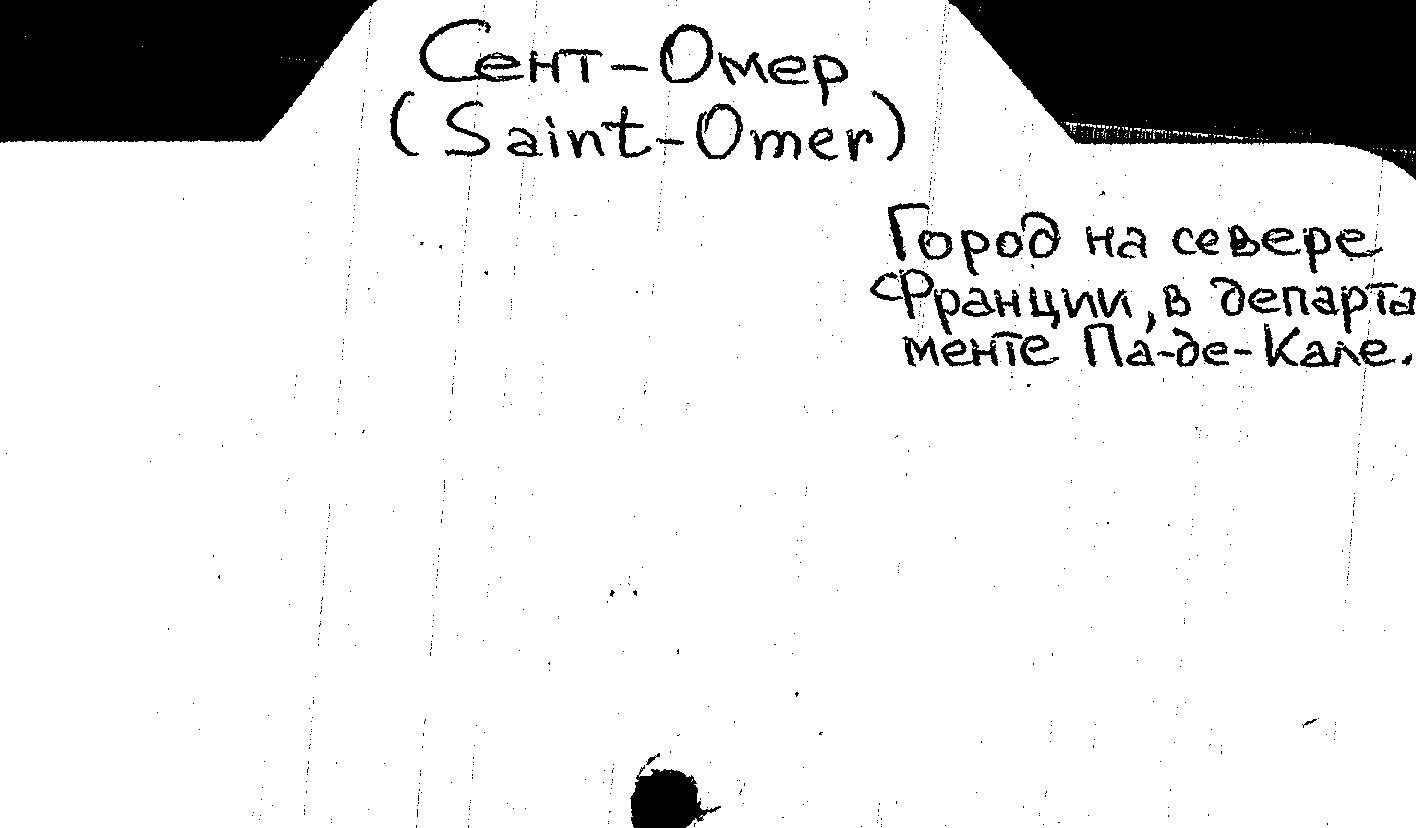 Сент-Омер
(Saint-Omer)
Город на севере
Франции, в департа
менте Па-де-Кале.